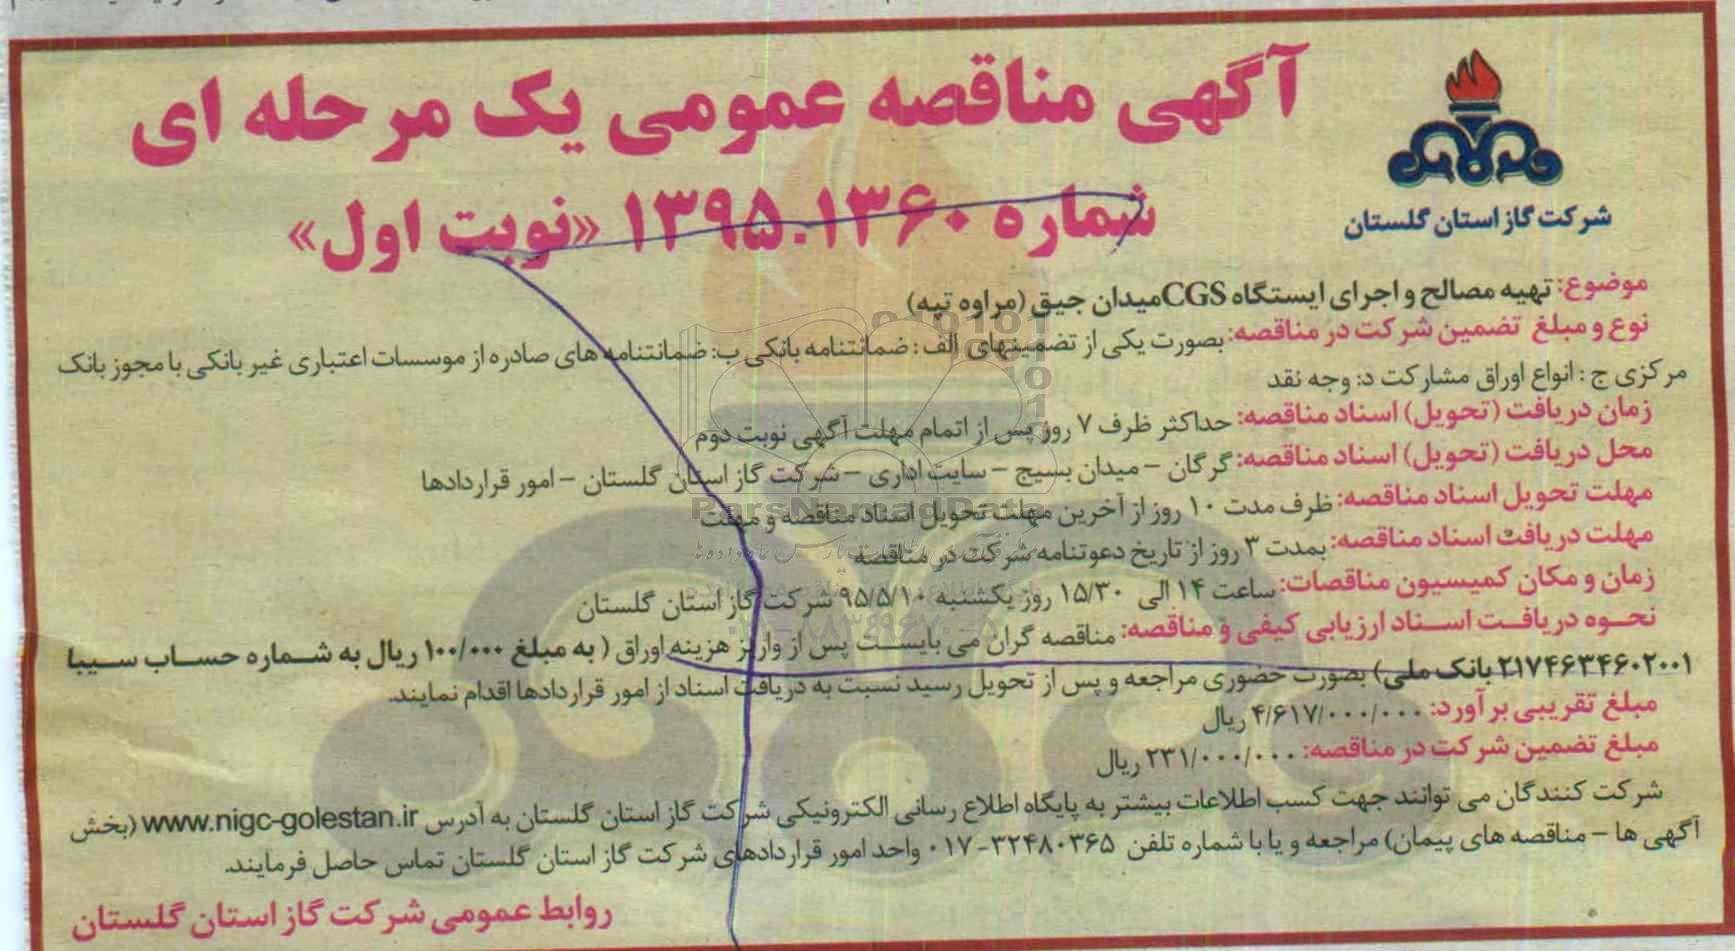 آگهی مناقصه عمومی یک مرحله ای
شماره ۱۳۹۵.۱۳۶۰ «نوبت اول»
شرکت گاز استان گلستان
موضوع: تهیه مصالح و اجرای ایستگاه CGS میدان جیق (مراوه تپه)
نوع و مبلغ تضمین شرکت در مناقصه: بصورت یکی از تضمینهای الف: ضمانتنامه بانکی ب: ضمانتنامه های صادره از موسسات اعتباری غیر بانکی با مجوز بانک
مرکزی ج: انواع اوراق مشارکت د: وجه نقد
زمان دریافت (تحویل) اسناد مناقصه: حداکثر ظرف ۷ روز پس از اتمام مهلت آگهی نوبت دوم
محل دریافت (تحویل) اسناد مناقصه: گرگان - میدان بسیج - سایت اداری - شرکت گاز استان گلستان - امور قراردادها
مهلت تحویل اسناد مناقصه: ظرف مدت ۱۰ روز از آخرین مهلت تحویل اسناد مناقصه و مهلت
مهلت دریافت اسناد مناقصه: بمدت ۳ روز از تاریخ دعوتنامه شرکت در مناقصه
زمان و مکان کمیسیون مناقصات: ساعت ۱۴ الی ۱۵/۳۰ روز یکشنبه ۹۵/۵/۱۰ شرکت گاز استان گلستان
نحوه دریافت اسناد ارزیابی کیفی و مناقصه: مناقصه گران می بایست پس از واریز هزینه اوراق (به مبلغ ۱۰۰/۰۰۰ ریال به شماره حساب سیبا
۲۱۷۴۶۳۴۶۰۲۰۰۱ بانک ملی) بصورت حضوری مراجعه و پس از تحویل رسید نسبت به دریافت اسناد از امور قراردادها اقدام نمایند.
مبلغ تقریبی برآورد: ۴/۶۱۷/۰۰۰/۰۰۰ ریال
مبلغ تضمین شرکت در مناقصه: ۲۳۱/۰۰۰/۰۰۰ ریال
شرکت کنندگان می توانند جهت کسب اطلاعات بیشتر به پایگاه اطلاع رسانی الکترونیکی شرکت گاز استان گلستان به آدرس www.nigc-golestan.ir (بخش
آگهی ها - مناقصه های پیمان) مراجعه و یا با شماره تلفن ۳۲۴۸۰۳۶۵-۰۱۷ واحد امور قراردادهای شرکت گاز استان گلستان تماس حاصل فرمایند.
روابط عمومی شرکت گاز استان گلستان
ParsNamadData